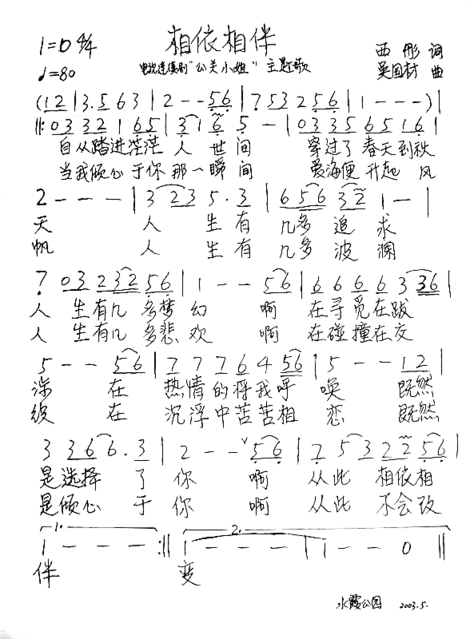 相依相伴
1=D 4/4
♩=80
电视连续剧"公关小姐"主题歌
西彤 词
吴国材 曲
(12|3.563|2--56|753256|1---)|
‖:0332165|3165-|03356516|
自从踏进茫茫人世间 穿过了春天到秋
当我倾心于你那一瞬间 爱海便升起风
2---|3235.3|656321-|
天 人生有几多追求
帆 人生有几多波澜
7 0323256|1--56|6666336|
人生有几多梦幻 啊 在寻觅在跋
人生有几多悲欢 啊 在碰撞在交
5--56|7776456|5--12|
涉 在热情的将我呼唤 既然
织 在沉浮中苦苦相恋 既然
3366.3|2--56|7532256|
是选择了你 啊 从此相依相
是倾心于你 啊 从此不会改
1. 2.
1---:‖1---|1--0‖
伴 变
水霞公园 2003.5.